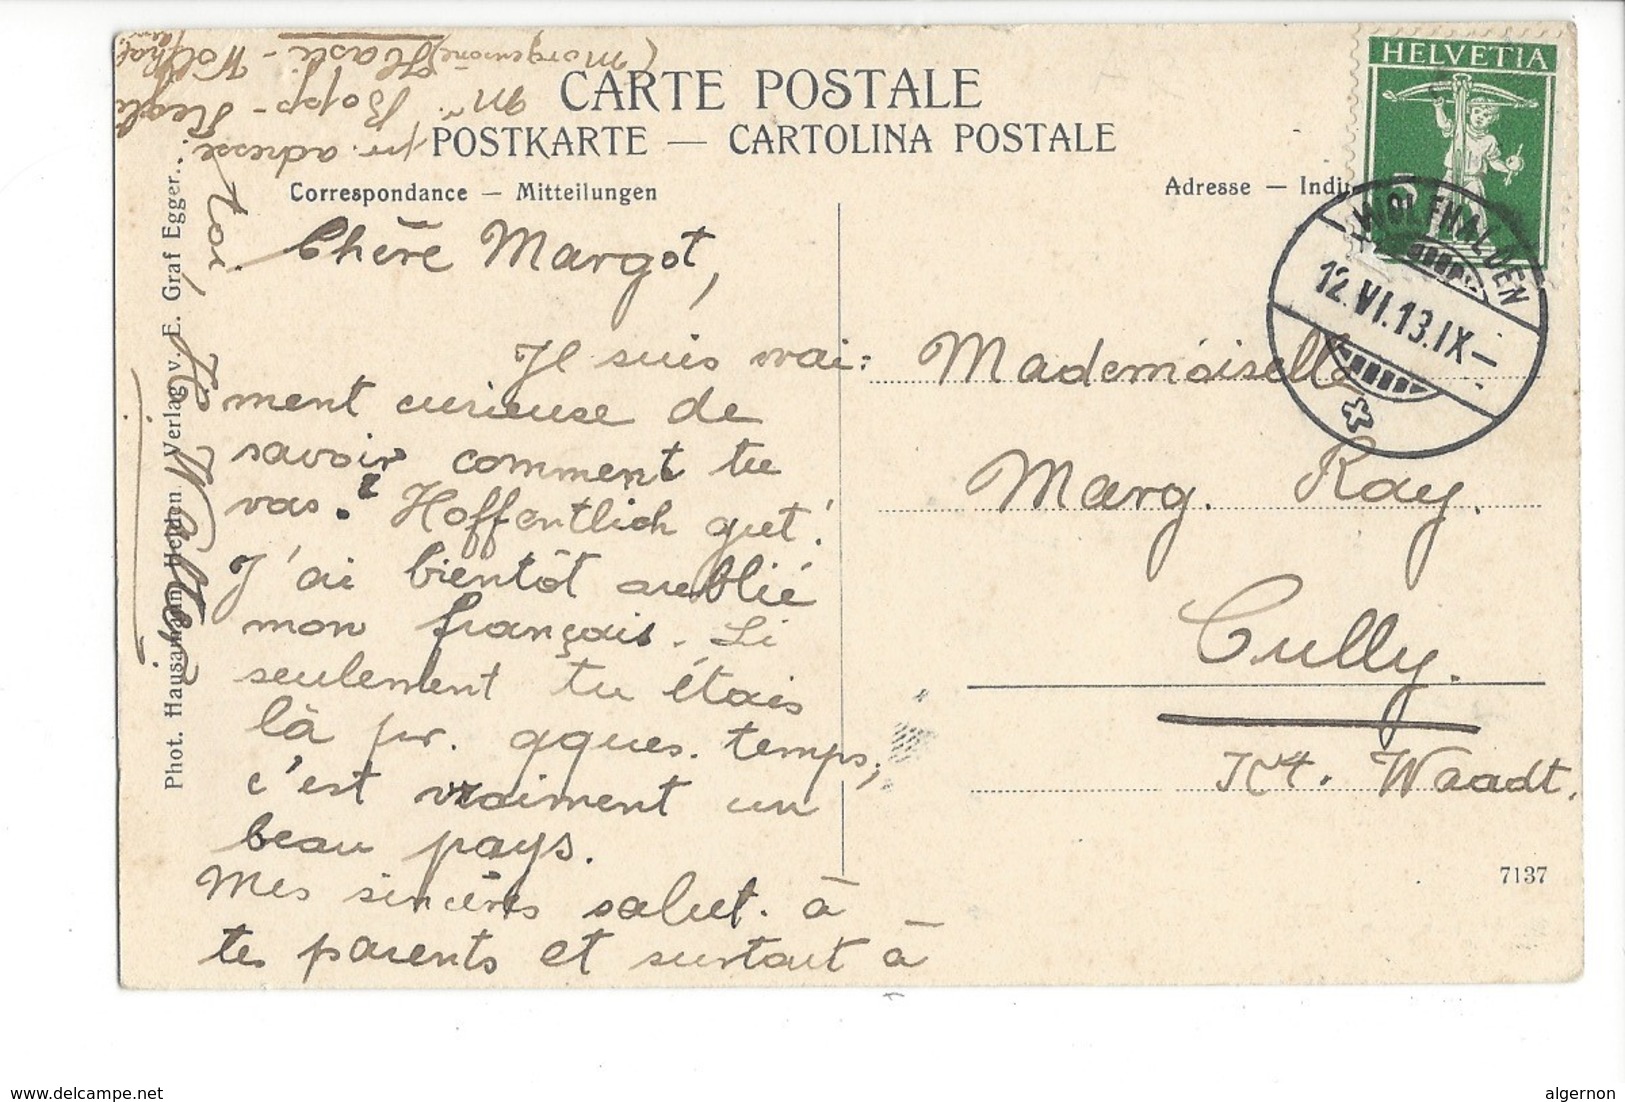 CARTE POSTALE
POSTKARTE — CARTOLINA POSTALE
Correspondance — Mitteilungen
Adresse —
HELVETIA
WOLFHALDEN
12.VI.13.IX–
Chère Margot,
Je suis vrai:
ment curieuse de
savoir comment tu
vas? Hoffentlich gut!
J'ai bientôt oublié
mon français. Si
seulement tu étais
là pr. qques. temps,
c'est vraiment un
beau pays.
Mes sincères salut. à
tes parents et surtout à
toi
pr. adresse:
Mr. Bopp-
(Morgensonne) Hasli-
Mademoiselle
Marg. Ray.
Cully.
Kt. Waadt.
7137
Phot. Hausamann Heiden Verlag v. E. Graf Egger.
www.delcampe.net
algernon